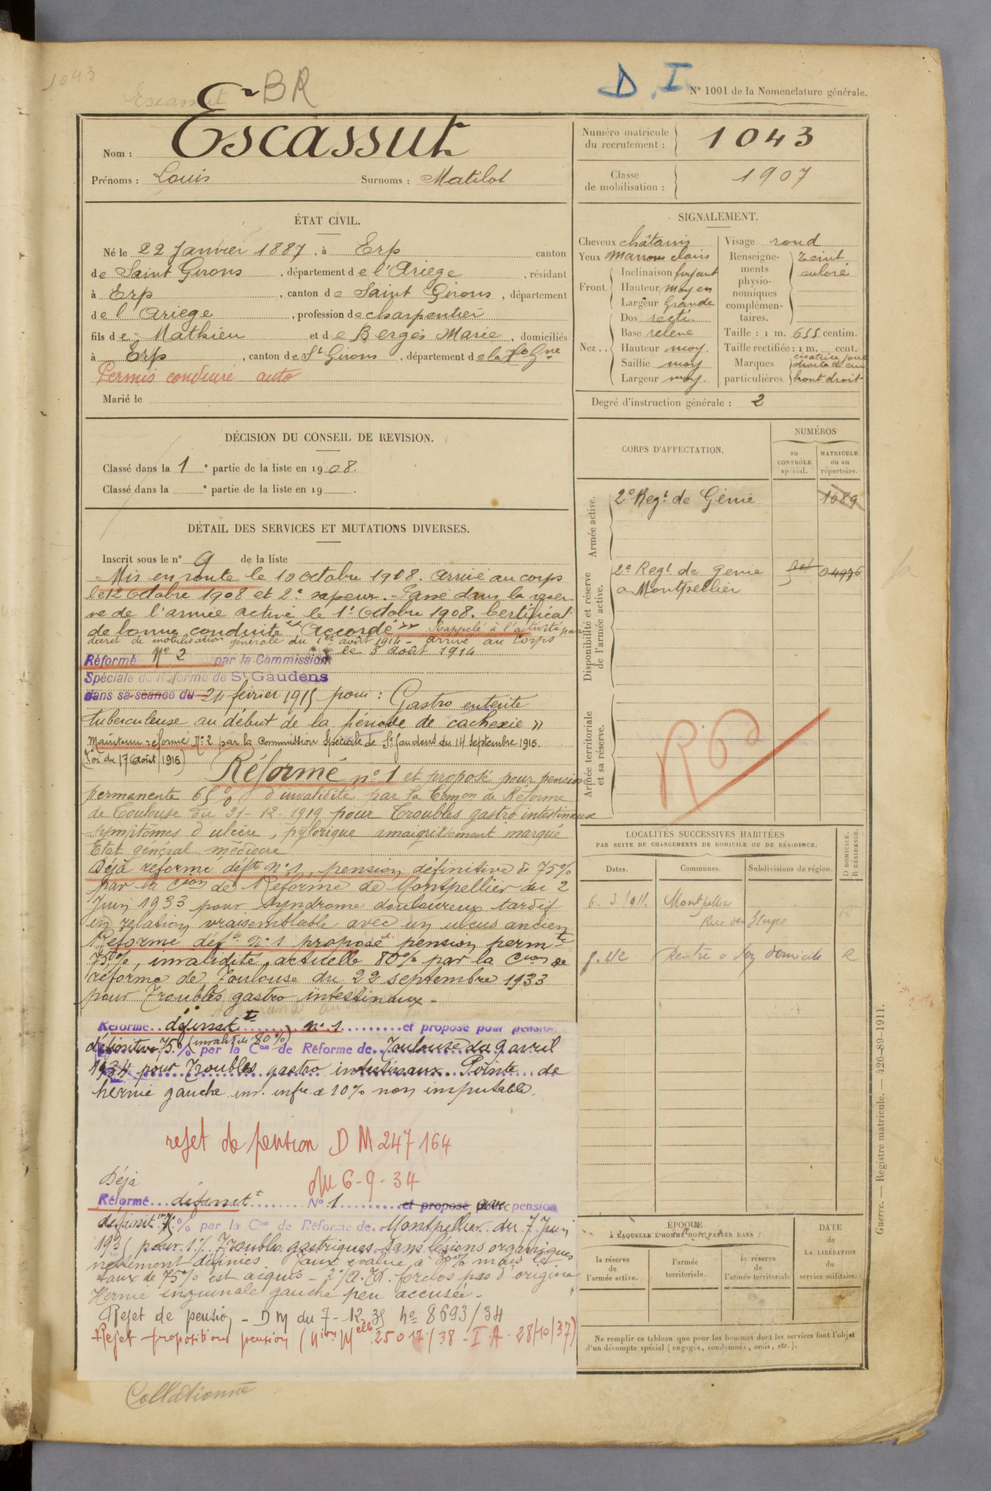 1043
Escassut BR
D. I.
N° 1001 de la Nomenclature générale.
Nom : Escassut
Prénoms : Louis Surnoms : Matelot
Numéro matricule du recrutement : 1043
Classe de mobilisation : 1907
ÉTAT CIVIL.
Né le 22 Janvier 1887, à Erp canton
de Saint Girons, département de l'Ariège, résidant
à Erp, canton de Saint Girons, département
de l'Ariège, profession de charpentier
fils de Mathieu et de Bergès Marie, domiciliés
à Erp, canton de St Girons, département de la
Permis conduire auto
Marié le
SIGNALEMENT.
Cheveux châtains
Yeux marrons clairs
Front Inclinaison fuyant
Hauteur moyen
Largeur Grande
Nez Dos recti
Base relevé
Hauteur moy.
Saillie moy
Largeur moy.
Visage rond
Renseignements physionomiques complémentaires. Teint coloré
Taille : 1 m. 655 centim.
Taille rectifiée : 1 m. cent.
Marques particulières. cicatrice joue droite front droit
Degré d'instruction générale : 2
DÉCISION DU CONSEIL DE REVISION.
Classé dans la 1e partie de la liste en 1908.
Classé dans la e partie de la liste en 19 .
DÉTAIL DES SERVICES ET MUTATIONS DIVERSES.
Inscrit sous le n° 9 de la liste
Mis en route le 10 octobre 1908. arrivé au corps
le 12 Octobre 1908 et 2e sapeur. Passé dans la réser
ve de l'armée active le 1er Octobre 1908. Certificat
de bonne conduite "Accordé" Rappelé à l'activité par
décret de mobilisation générale du 1er août 1914 - arrivé au corps
le 3 août 1914
Réformé N° 2 par la Commission
Spéciale de Réforme de St Gaudens
dans sa séance du 24 février 1915 pour : Gastro entérite
tuberculeuse au début de la période de cachexie "
Maintenu réformé N° 2 par la Commission Spéciale de St Gaudens du 14 septembre 1915.
(Loi du 17 Août 1915)
Réformé n° 1 et proposé pour pension
permanente 65% d'invalidité par la Cmon de Réforme
de Toulouse du 31-12-1919 pour Troubles gastro intestinaux
symptômes d'ulcère, pylorique amaigrissement marqué
Etat général médiocre
Déjà réformé déft n° 1, pension définitive de 75%
par la Cion de Réforme de Montpellier du 2
Juin 1933 pour syndrome douloureux tardif
en relation vraisemblable avec un ulcus ancien
Réformé déft n° 1 proposé pension permte
75%, invalidité actuelle 80% par la Cion de
réforme de Toulouse du 22 Septembre 1933
pour Troubles gastro intestinaux -
Réformé définitt n° 1 et proposé pour pension
définitive 75% (invalidité 80%) par la Con de Réforme de Toulouse du 9 avril
1934 pour Troubles gastro intestinaux. Pointe de
hernie gauche inv. infre à 10% non imputable.
rejet de pension D M 247 164
du 6-9-34
Déjà
Réformé définitt N° 1 et proposé pour pension
par la Con de Réforme de Montpellier du 7 Juin
193 pour 1°/ Troubles gastriques sans lésions organiques
nettement définies. Taux évalué à mais le
taux de 75% est acquis -
Hernie inguinale gauche peu accusée.
Rejet de pension - D M du 7-12 35 n° 8693/34
Rejet propositions pension 25017/38 - I A - 28/10/37)
Collationné
CORPS D'AFFECTATION.
NUMÉROS
AU CONTRÔLE spécial.
MATRICULE ou au répertoire.
Armée active.
2e Regt de Génie 1089
Disponibilité et réserve de l'armée active.
2e Regt de génie
à Montpellier
Armée territoriale et sa réserve.
LOCALITÉS SUCCESSIVES HABITÉES
PAR SUITE DE CHANGEMENTS DE DOMICILE OU DE RÉSIDENCE.
D DOMICILE. R RÉSIDENCE.
Dates. Communes. Subdivisions de région.
6. 3. 1911. Montpellier
Rue
Rentre à son domicile R
ÉPOQUE
À LAQUELLE L'HOMME DOIT PASSER DANS :
la réserve de l'armée active.
l'armée territoriale.
la réserve de l'armée territoriale
DATE de LA LIBÉRATION du service militaire.
Ne remplir ce tableau que pour les hommes dont les services font l'objet
d'un décompte spécial (engagés, condamnés, omis, etc.).
Guerre. — Registre matricule. — 426-89-1911.